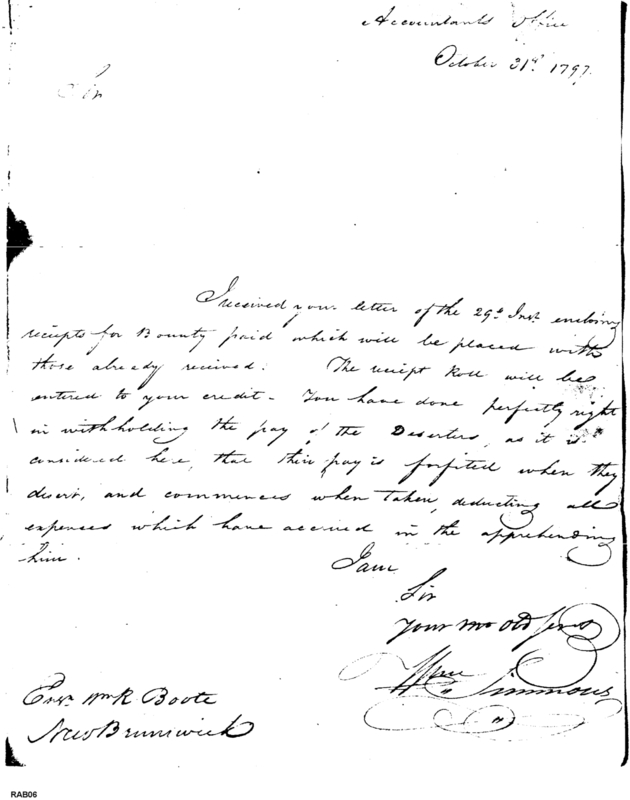 Accountants Office
October 31st 1797.
Sir
I received your letter of the 29th Inst. enclosing
receipts for Bounty paid which will be placed with
those already received. The receipt Roll will be
entered to your credit - You have done perfectly right
in withholding the pay of the Deserters, as it is
considered here, that their pay is forfited when they
desert, and commences when taken, deducting all
expences which have accrued in the apprehending
him.
I am
Sir
Your Mo Obd Servt
Wm Simmons
Ensn Wm R. Boote
New Brunswick
RAB06